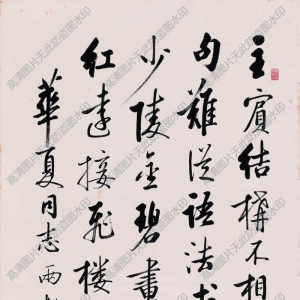 主賓結構不相
句難從語法求
少陵金碧畫
紅遠接飛樓
華夏同志兩
高清图片无此防盗图水印